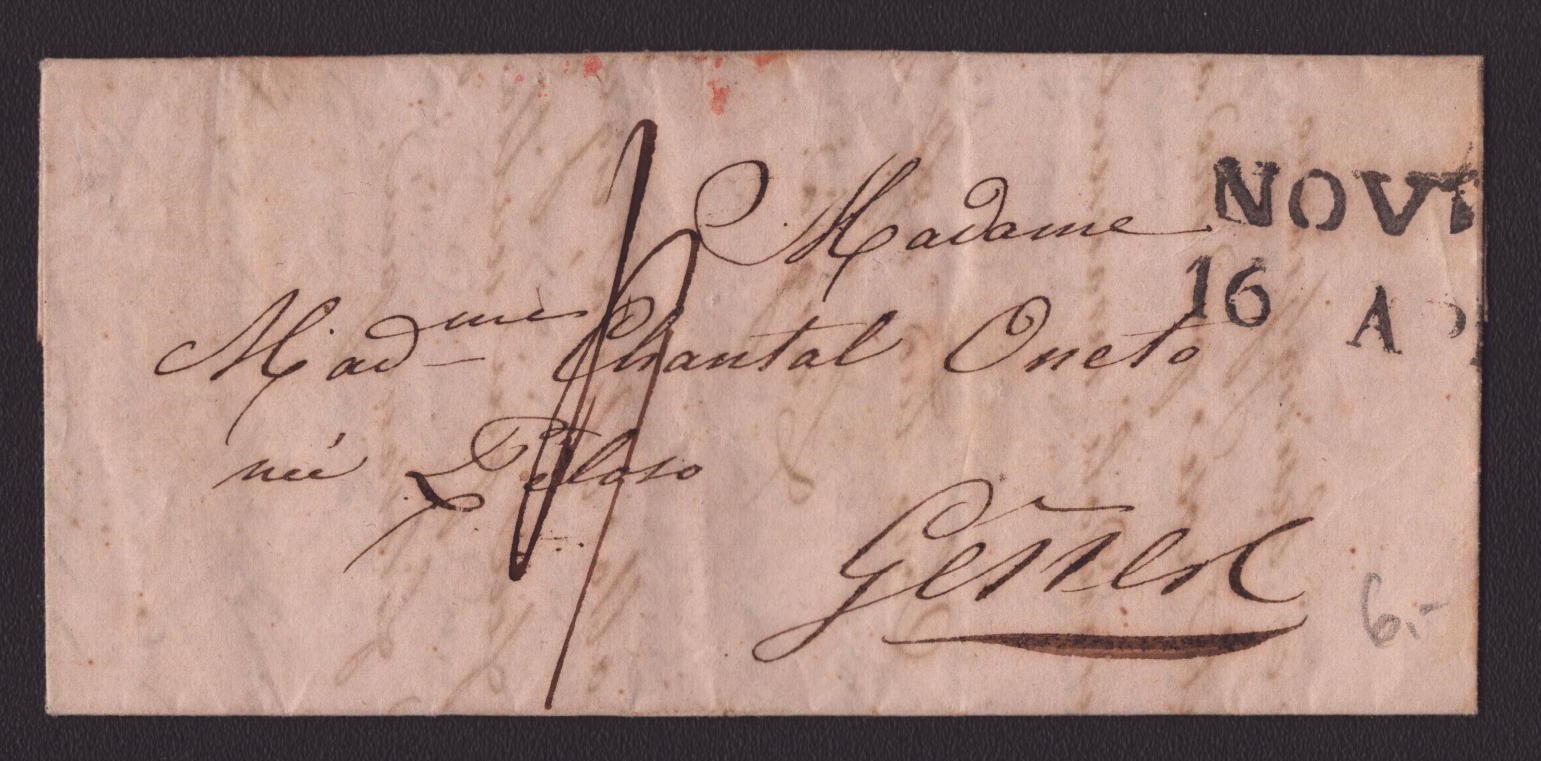 Madame
NOVI
16 AP
Mad.me Chantal Oneto
née Peloso
Gênes
6.-